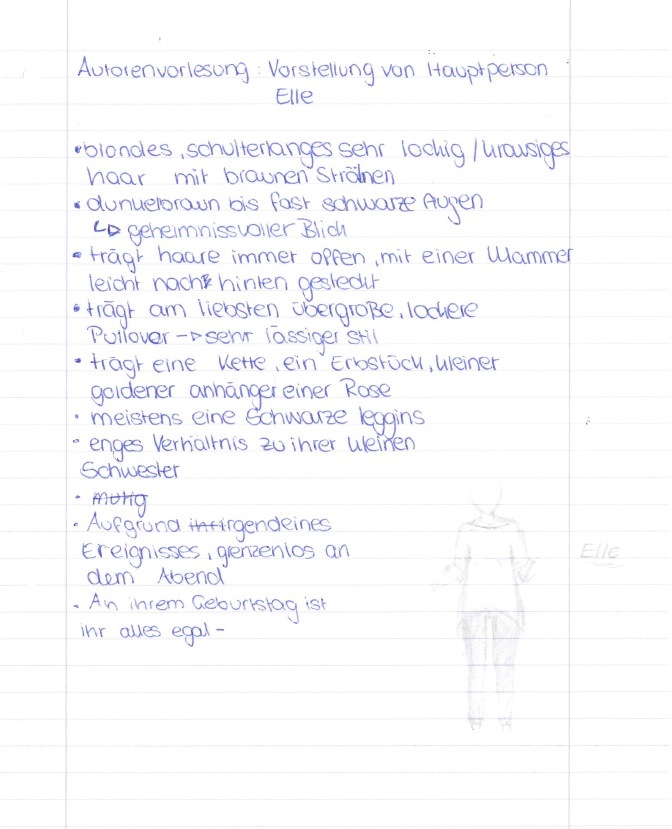 Autorenvorlesung : Vorstellung von Hauptperson
Elle
• blondes, schulterlanges sehr lockig / krausiges
haar mit braunen Strähnen
• dunkelbraun bis fast schwarze Augen
↳ geheimnissvoller Blick
• trägt haare immer offen, mit einer Klammer
leicht nach hinten gesteckt
• trägt am liebsten übergroße, lockere
Pullover → sehr lässiger stil
• trägt eine Kette, ein Erbstück, kleiner
goldener anhänger einer Rose
• meistens eine Schwarze leggins
• enges Verhältnis zu ihrer kleinen
Schwester
• mutig
• Aufgrund irgendeines
Ereignisses, grenzenlos an
dem Abend
• An ihrem Geburtstag ist
ihr alles egal -
Elle